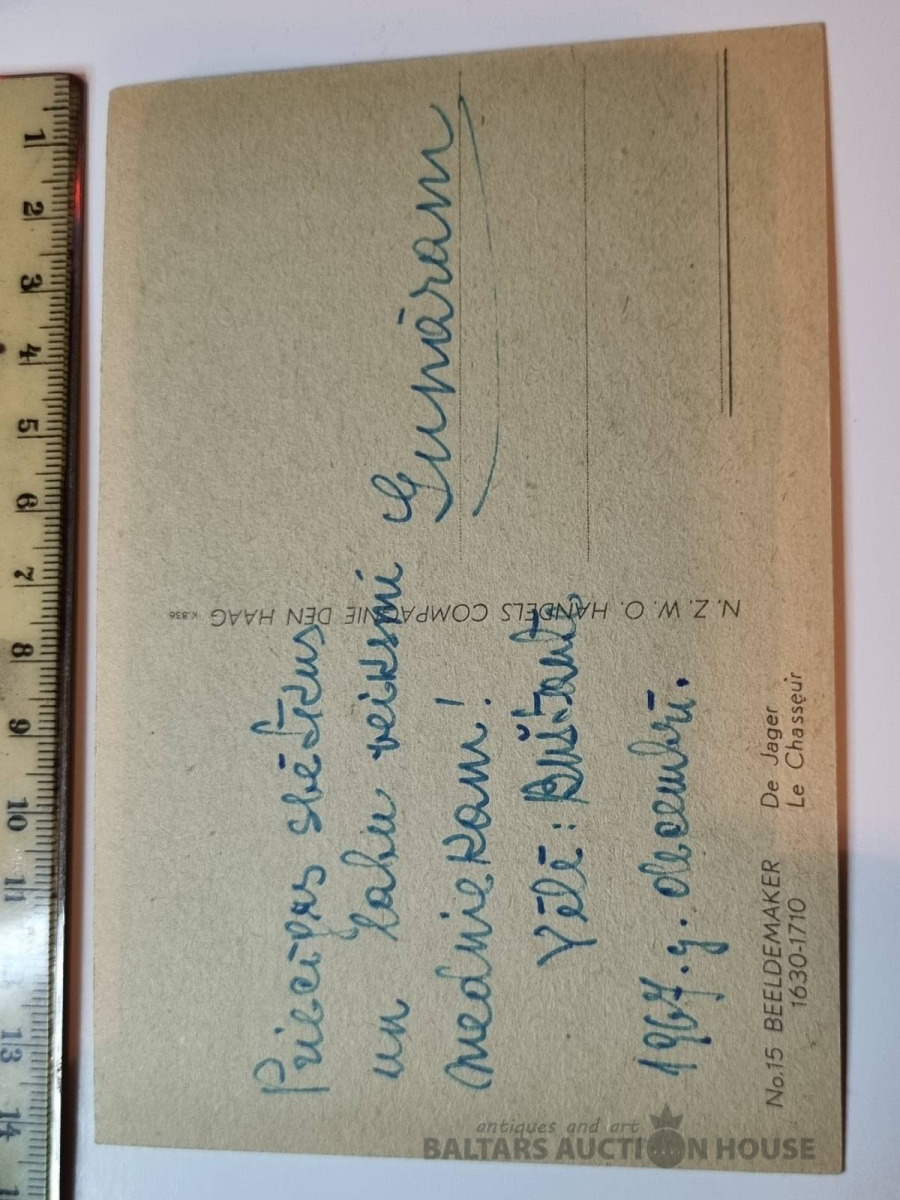 Priecīgus svētkus
un labu veiksmi
medniekam!
Vēlē:
1967.g. decembrī.
Gunāram
N.Z.W.O. HANDELS COMPAGNIE DEN HAAG K.836
No.15 BEELDEMAKER De Jager
1630-1710 Le Chasseur
1
2
3
4
5
6
7
8
9
10
11
13
14
antiques and art
BALTARS AUCTION HOUSE